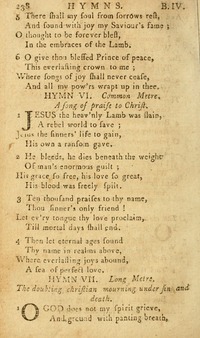 238 HYMNS. B. IV.
5 There shall my soul from sorrows rest,
And found with joy my Saviour's fame ;
O thought to be forever blest,
In the embraces of the Lamb.
6 O give thou blessed Prince of peace,
This everlasting crown to me ;
Where songs of joy shall never cease,
And all my pow'rs wrapt up in thee.
HYMN VI. Common Metre.
A song of praise to Christ.
JESUS the heav'nly Lamb was slain,
A rebel world to save ;
Jesus the sinners' life to gain,
His own a ransom gave.
2 He bleeds, he dies beneath the weight
Of man's enormous guilt ;
His grace so free, his love so great,
His blood was freely spilt.
3 Ten thousand praises to thy name,
Thou sinner's only friend !
Let ev'ry tongue thy love proclaim,
Till mortal days shall end.
4 Then let eternal ages sound
Thy name in realms above,
Where everlasting joys abound,
A sea of perfect love.
HYMN VII. Long Metre.
The doubting christian mourning under sin and
death.
1 O GOD does not my spirit grieve,
And ground with panting breath,